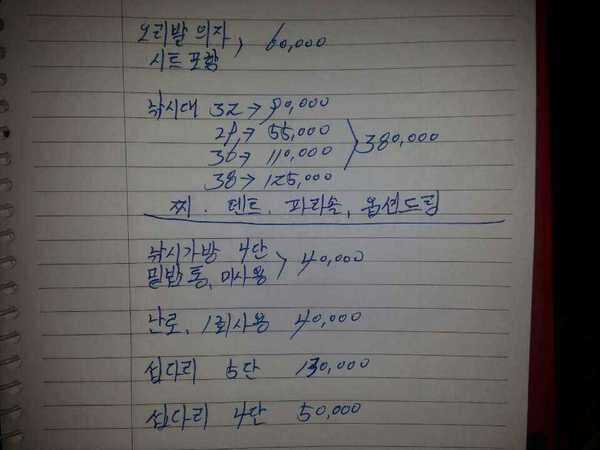 오리발 의자
시트포함 > 60,000
낚시대 32→90,000
29→55,000
36→110,000 > 380,000
38→125,000
찌. 텐트. 파라솔, 옵션드림
낚시가방 4단
밑밥통, 미사용 > 40,000
난로, 1회사용 40,000
섭다리 5단 130,000
섭다리 4단 50,000